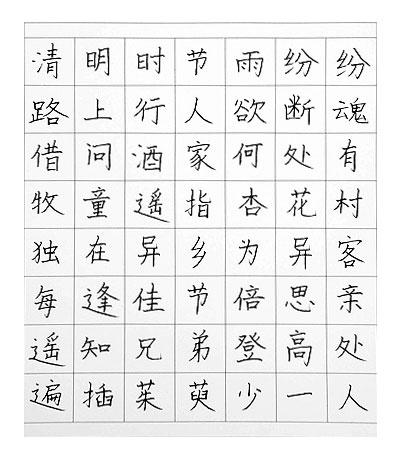 清明时节雨纷纷
路上行人欲断魂
借问酒家何处有
牧童遥指杏花村
独在异乡为异客
每逢佳节倍思亲
遥知兄弟登高处
遍插茱萸少一人